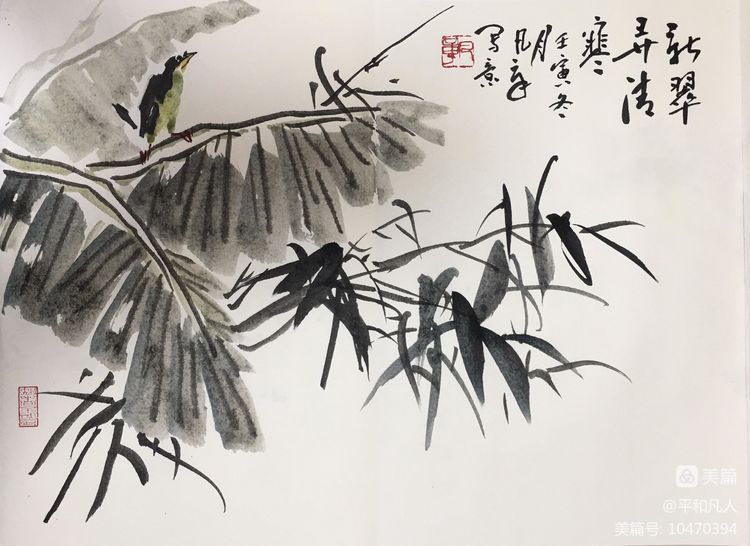 新翠
弄清
寒
壬寅冬
月
凡
写
美篇
@平和凡人
美篇号: 10470394